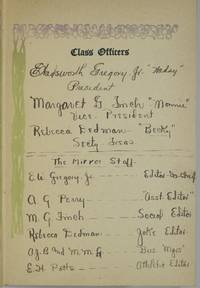 Class Officers
Gregory Jr.
President
Margaret G Imoh "Monnie"
Vice President
Rebecca Dedman "Becky"
Secty Treas
The Mirror Staff
E.W. Gregory Jr. Editor-in-Chief
A G Perry "Asst Editor"
M. G. Imoh Social Editor
Rebecca Dedman Joke Editor
A.J.B and M.M.G. Bus. Mgrs'
E.H. Potts Athletic Editor